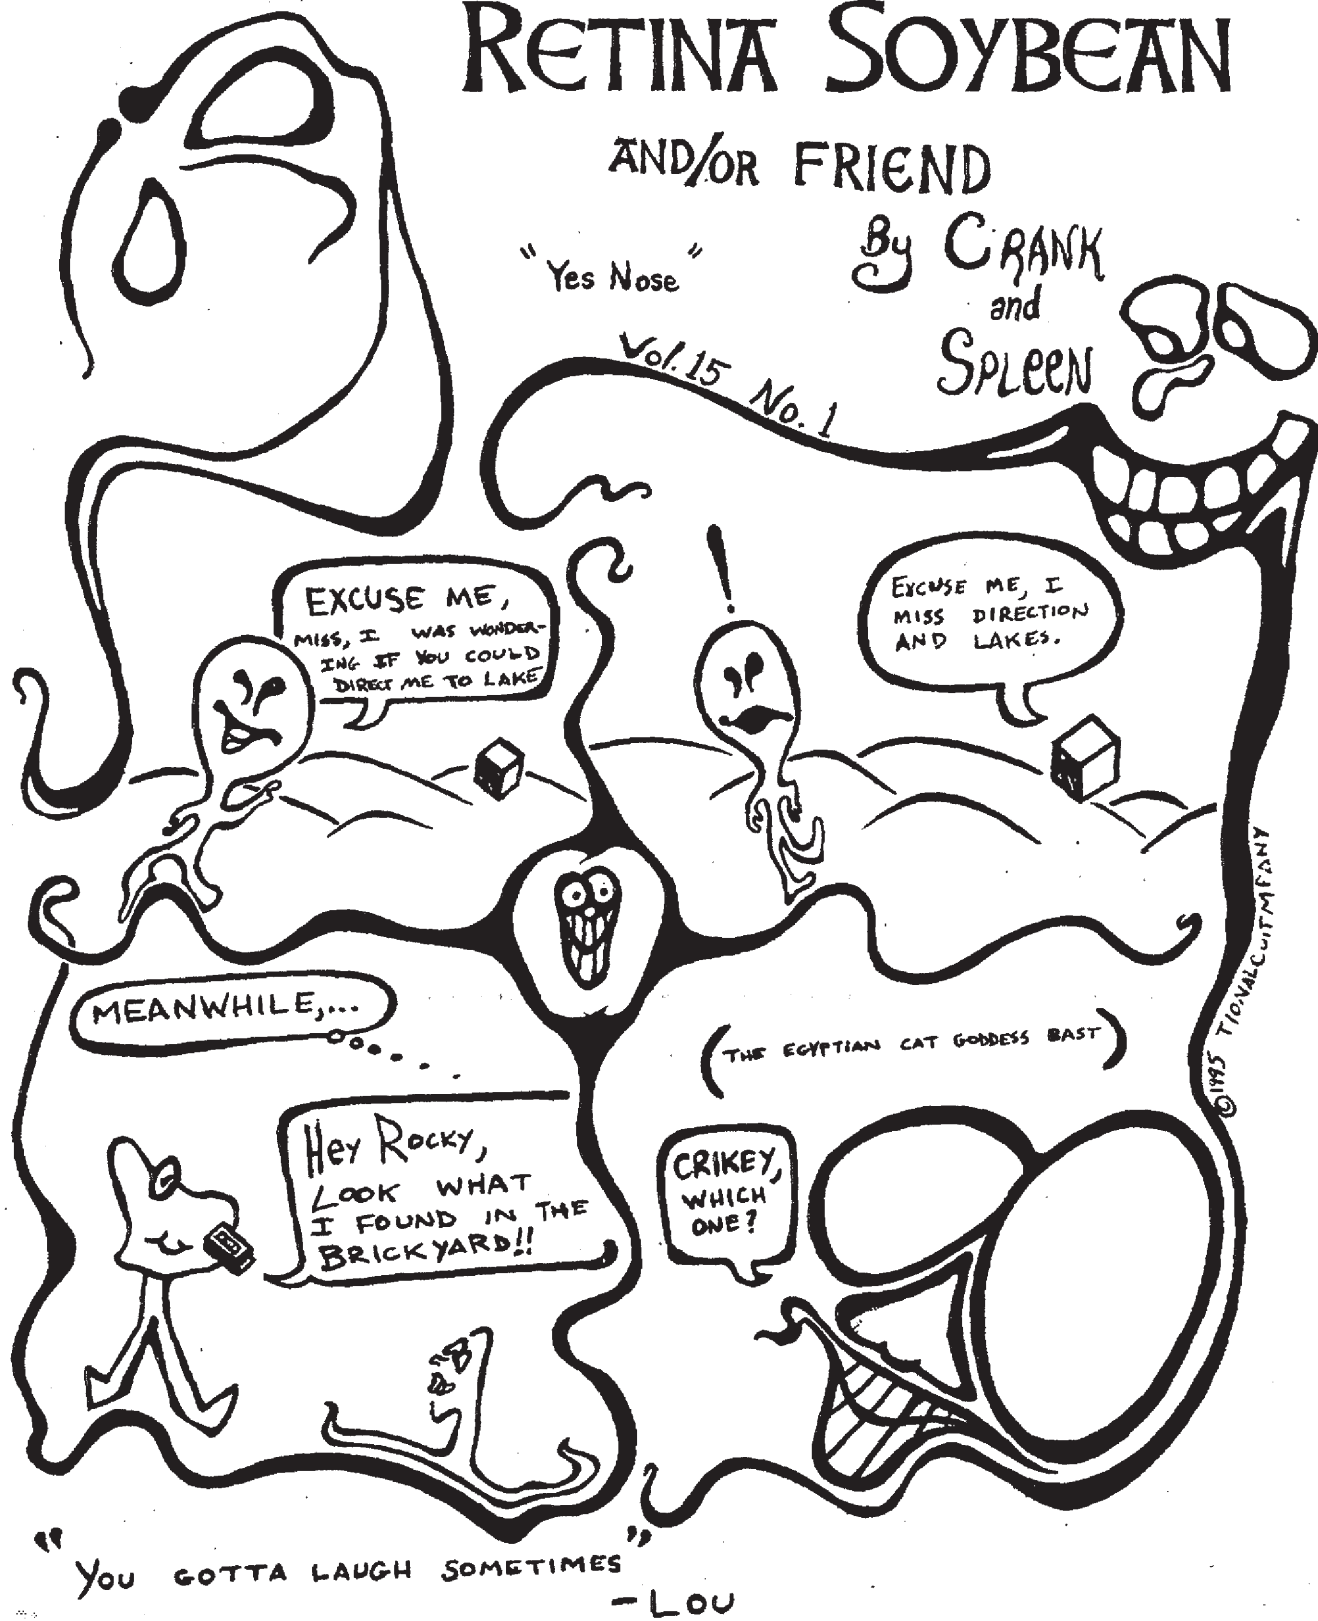 RETINA SOYBEAN
AND/OR FRIEND
By CRANK
and
SPLEEN
"Yes Nose"
Vol. 15 No. 1
EXCUSE ME,
MISS, I WAS WONDER-
ING IF YOU COULD
DIRECT ME TO LAKE
!
EXCUSE ME, I
MISS DIRECTION
AND LAKES.
MEANWHILE,...
HEY ROCKY,
LOOK WHAT
I FOUND IN THE
BRICKYARD!!
(THE EGYPTIAN CAT GODDESS BAST)
CRIKEY,
WHICH
ONE?
©1995 TIONALCUITMEANY
"YOU GOTTA LAUGH SOMETIMES"
- LOU